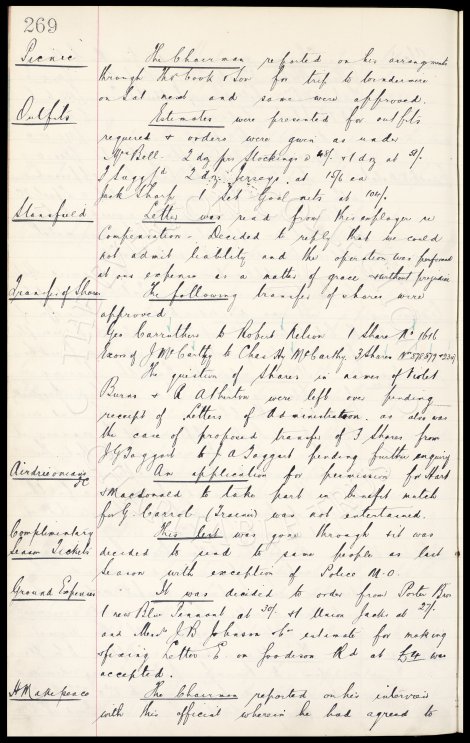 269
Picnic
The Chairman reported on his arrangements
through Thos Cook & Son for trip to Windermere
on Sat next and same were approved.
Outfits
Estimates were presented for outfits
required & orders were given as under
Mrs Bell. 2 doz prs Stockings @ 48/- & 1 doz at 51/-
J Suggfd 2 doz Jerseys at 15/6 ea
Jack Sharp 1 Set Goal nets at 104/-
Stansfield
Letter was read from this employer re
Compensation. Decided to reply that we could
not admit liability and the operation was performed
at our expense as a matter of grace & without prejudice
Transfer of Shares
The following transfer of shares were
approved
Geo Carruthers to Robert Nelson 1 Share No 1616
Exors of J McCarthy to Chas H McCarthy. 3 Shares No
The question of Shares in names of Violet
Burns & A Atherton were left over pending
receipt of Letters of Administration, as also was
the case of proposed transfer of 3 Shares from
J G Taggart to J A Taggart pending further enquiry
Airdrieonians FC
An application for permission for Hart
& Macdonald to take part in benefit match
for G. Carrol (Trainer) was not entertained.
Complimentary
Season Tickets
This list was gone through & it was
decided to send to same people as last
Season with exception of Police M.O.
Ground Expenses
It was decided to order from Porter Bros
1 new Blue Pennant at 30/- & 1 Union Jack at 27/-
and Messrs J B Johnson Co estimate for making
& fixing Letter E on Goodison Rd at £4 was
accepted.
H Makepeace
The Chairman reported on his interview
with this official wherein he had agreed to